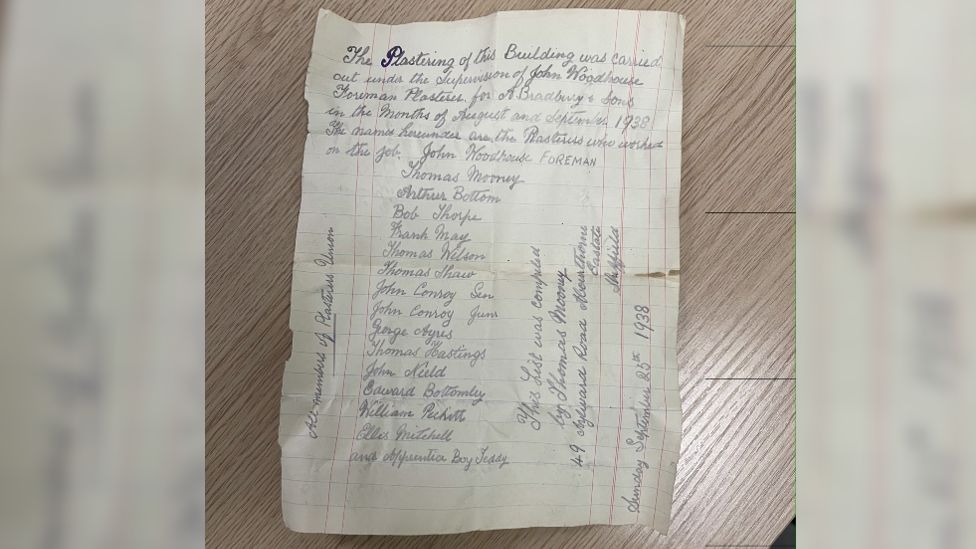 The Plastering of this Building was carried
out under the supervision of John Woodhouse
Foreman Plasterer for A Bradbury & Sons
in the Months of August and September 1938
The names hereunder are the Plasterers who worked
on the job. John Woodhouse FOREMAN
Thomas Mooney
Arthur Bottom
Bob Thorpe
Frank May
Thomas Wilson
Thomas Shaw
John Conroy Sen
John Conroy Junr
George Ayres
Thomas Hastings
John Nield
Edward Bottomley
William Pickett
Ellis Mitchell
and Apprentice Boy Teddy
All members of Plasterers Union
This List was compiled
by Thomas Mooney
49 Aylward Road
Estate
Sheffield
Sunday September 25th 1938